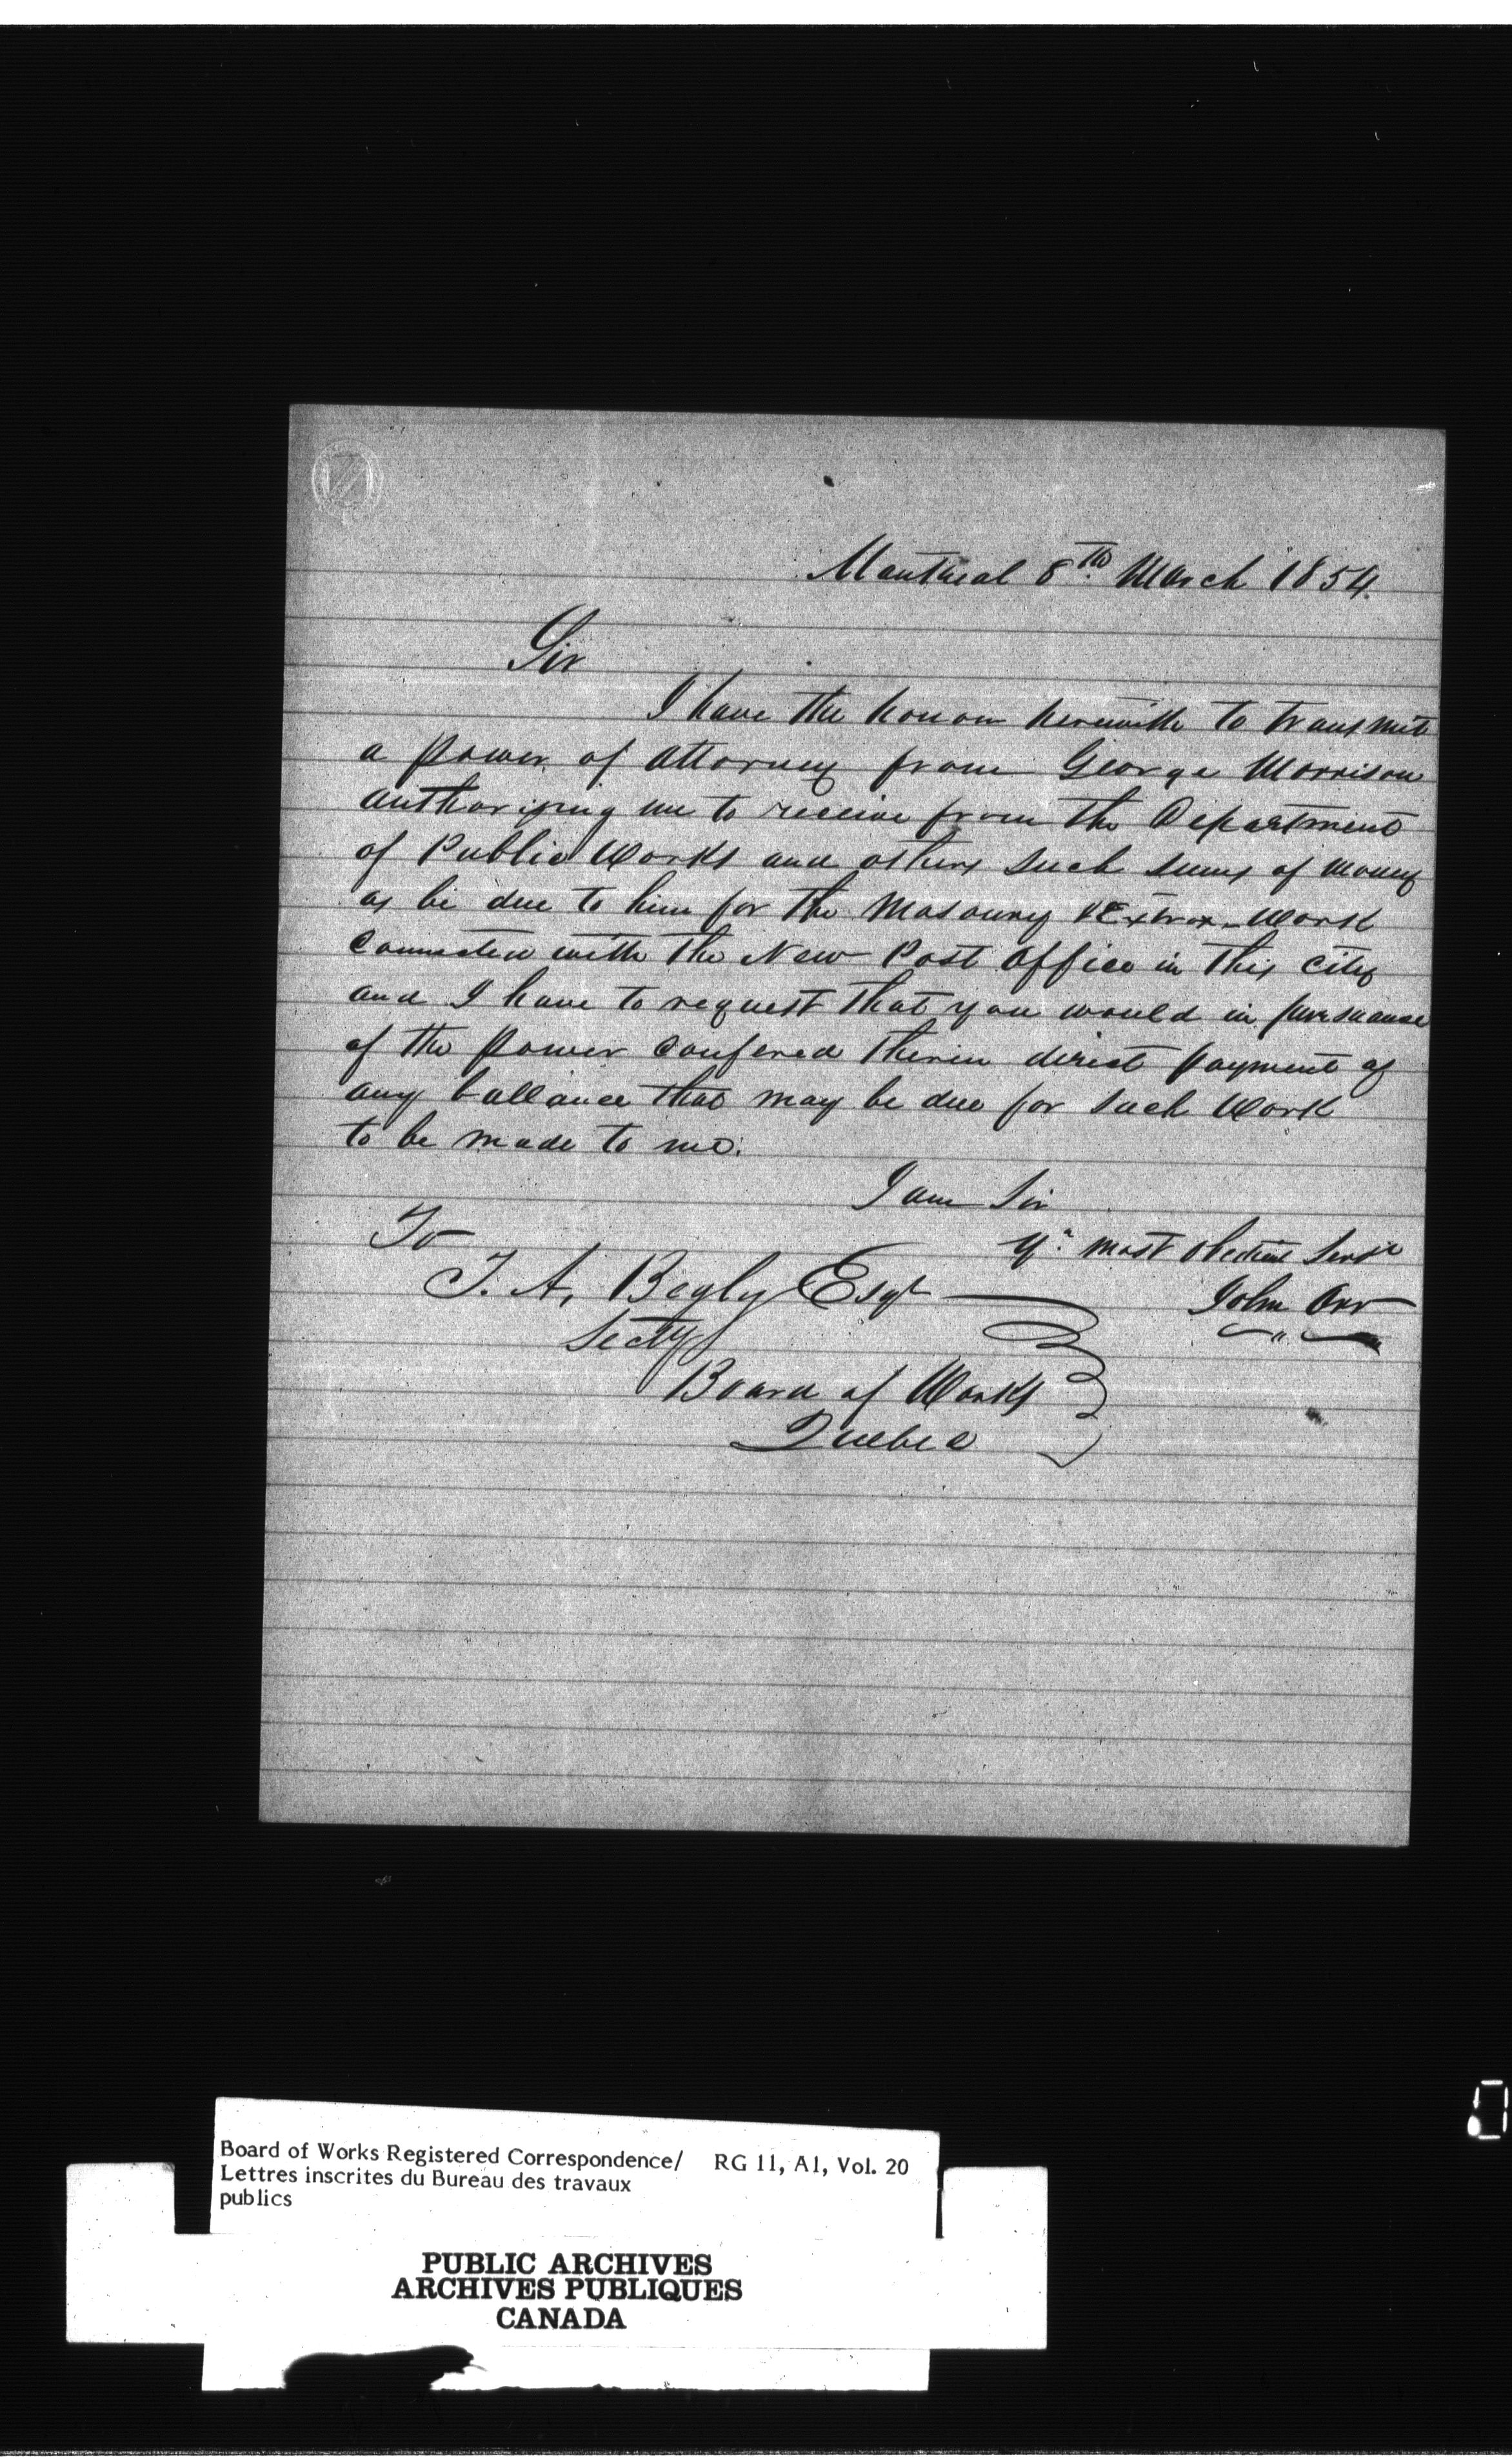 Montreal 8th March 1854.
Sir
I have the honor herewith to transmit
a power of attorney from George Morrison
authorizing me to receive from the Department
of Public Works and others such sums of money
as be due to him for the Masonry & Extra-Work
connected with the New Post Office in this city
and I have to request that you would in pursuance
of the power confered therin direct payment of
any ballance that may be due for such Work
to be made to me.
I am Sir
Yr. most obedient Servt
John Orr
To
T. A. Begly Esqr
Secty
Board of Works
Quebec
Board of Works Registered Correspondence/ RG 11, A1, Vol. 20
Lettres inscrites du Bureau des travaux
publics
PUBLIC ARCHIVES
ARCHIVES PUBLIQUES
CANADA